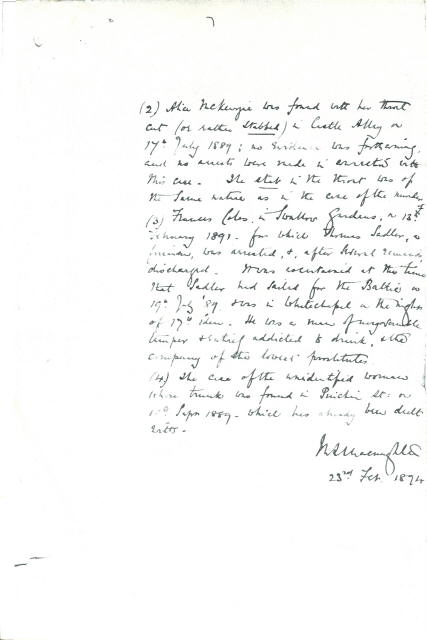 (2) Alice McKenzie was found with her throat
cut (or rather stabbed) in Castle Alley on
17th July 1889; no evidence was forthcoming,
and no arrests were made in connection with
this case. The stab in the throat was of
the same nature as in the case of the murder of
(3) Frances Coles, in Swallow Gardens, on 13th
February 1891 - for which Thomas Sadler, a
fireman, was arrested, &, after several remands,
discharged. It was ascertained at the time
that Sadler had sailed for the Baltic on
19th July '89 & was in Whitechapel on the night
of 17th idem. He was a man of ungovernable
temper & entirely addicted to drink, & the
company of the lowest prostitutes
(4) The case of the unidentified woman
whose trunk was found in Pinchin St: on
Sept 1889 - which has already been dealt
with.
M S Macnaghten
23rd Feb. 1894